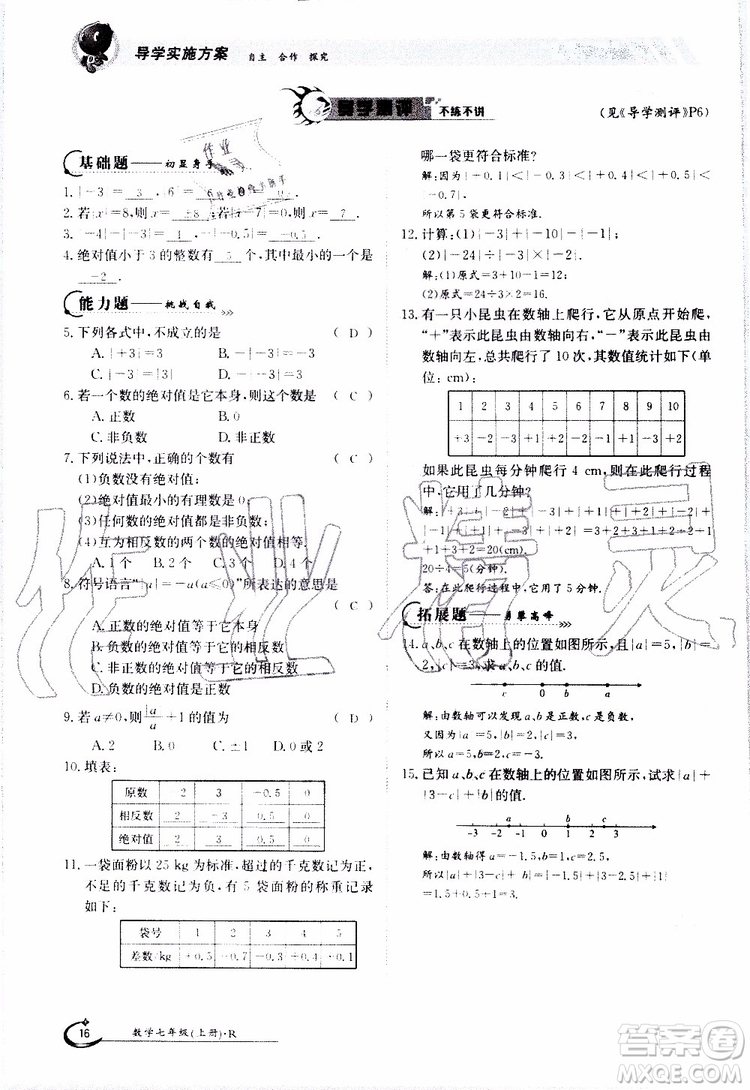 导学实施方案 自主 合作 探究
导学测评 不练不讲
(见《导学测评》P6)
基础题——初显身手
1. |-3|= 3 ,
2. 若|x|=8,则x= ±8 ;若|x-7|=0,则x= 7 .
3. -4|-3|+|-1|+|-0.5|=
4. 绝对值小于 3 的整数有 5 个,其中最小的一个是
-2 .
能力题——挑战自我
5. 下列各式中,不成立的是 ( D )
6. 若一个数的绝对值是它本身,则这个数是 ( C )
A. 正数 B. 0
C. 非负数 D. 非正数
7. 下列说法中,正确的个数有 ( C )
(1)负数没有绝对值;
(2)绝对值最小的有理数是 0;
(3)任何数的绝对值都是非负数;
(4)互为相反数的两个数的绝对值相等.
A. 1 个 B. 2 个 C. 3 个 D. 4 个
8. 符号语言“|a|=-a(a≤0)”所表达的意思是
( C )
A. 正数的绝对值等于它本身
B. 负数的绝对值等于它的相反数
C. 非正数的绝对值等于它的相反数
D. 负数的绝对值是正数
9. 若 a≠0,则|a|/a+1 的值为 ( D )
A. 2 B. 0 C. ±1 D. 0 或 2
10. 填表:
原数 2 3 -0.5
相反数 -2 -3 0.5
绝对值 2 3 0.5
11. 一袋面粉以 25 kg 为标准,超过的千克数记为正,
不足的千克数记为负,有 5 袋面粉的称重记录
如下:
袋号 1 2 3 4 5
差数/kg +0.5 -0.7 +0.3 -0.5 -0.1
哪一袋更符合标准?
解:因为|-0.1|<|+0.3|<|-0.5|=|+0.5|<
|-0.7|.
所以第 5 袋更符合标准.
12. 计算:(1)|-3|+|-10|-|-1|;
(2)|-24|÷|-3|×|-2|.
解:(1)原式=3+10-1=12.
(2)原式=24÷3×2=16.
13. 有一只小昆虫在数轴上爬行,它从原点开始爬,
“+”表示此昆虫由数轴向右,“-”表示此昆虫由
数轴向左,总共爬行了 10 次,其数值统计如下(单
位:cm):
1 2 3 4 5 6 7 8 9 10
+3 -2 -3 +1 +2 -2 -1 +1 -3 +2
如果此昆虫每分钟爬行 4 cm,则在此爬行过程
中,它用了几分钟?
解:|+3|+|-2|+|-3|+|+1|+|+2|+|-2|+
|-1|+|+1|+|-3|+|+2|=3+2+3+1+2+2+1
+1+3+2=20(cm).
20÷4=5(分钟).
答:在此爬行过程中,它用了 5 分钟.
拓展题——勇攀高峰
14. a、b、c 在数轴上的位置如图所示,且|a|=5,|b|=
2,|c|=3,求 a、b、c 的值.
c 0 b a
解:由数轴可以发现 a、b 是正数,c 是负数.
又因为|a|=5,|b|=2,|c|=3.
所以 a=5,b=2,c=-3.
15. 已知 a、b、c 在数轴上的位置如图所示,试求|a|+
|3-c|+|b|的值.
a b c
-3 -2 -1 0 1 2 3
16
数学七年级(上册)·R